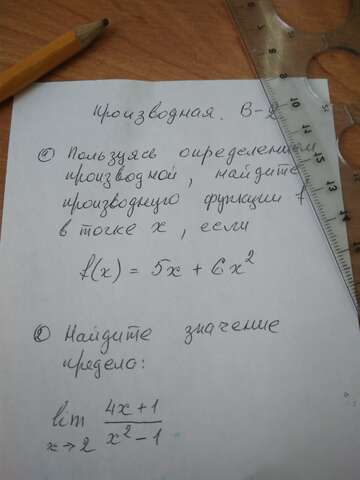 Производная. В-2
① Пользуясь определением
производной, найдите
производную функции f
в точке x, если
f(x) = 5x + 6x²
② Найдите значение
предела:
lim 4x+1
x→2 x²-1